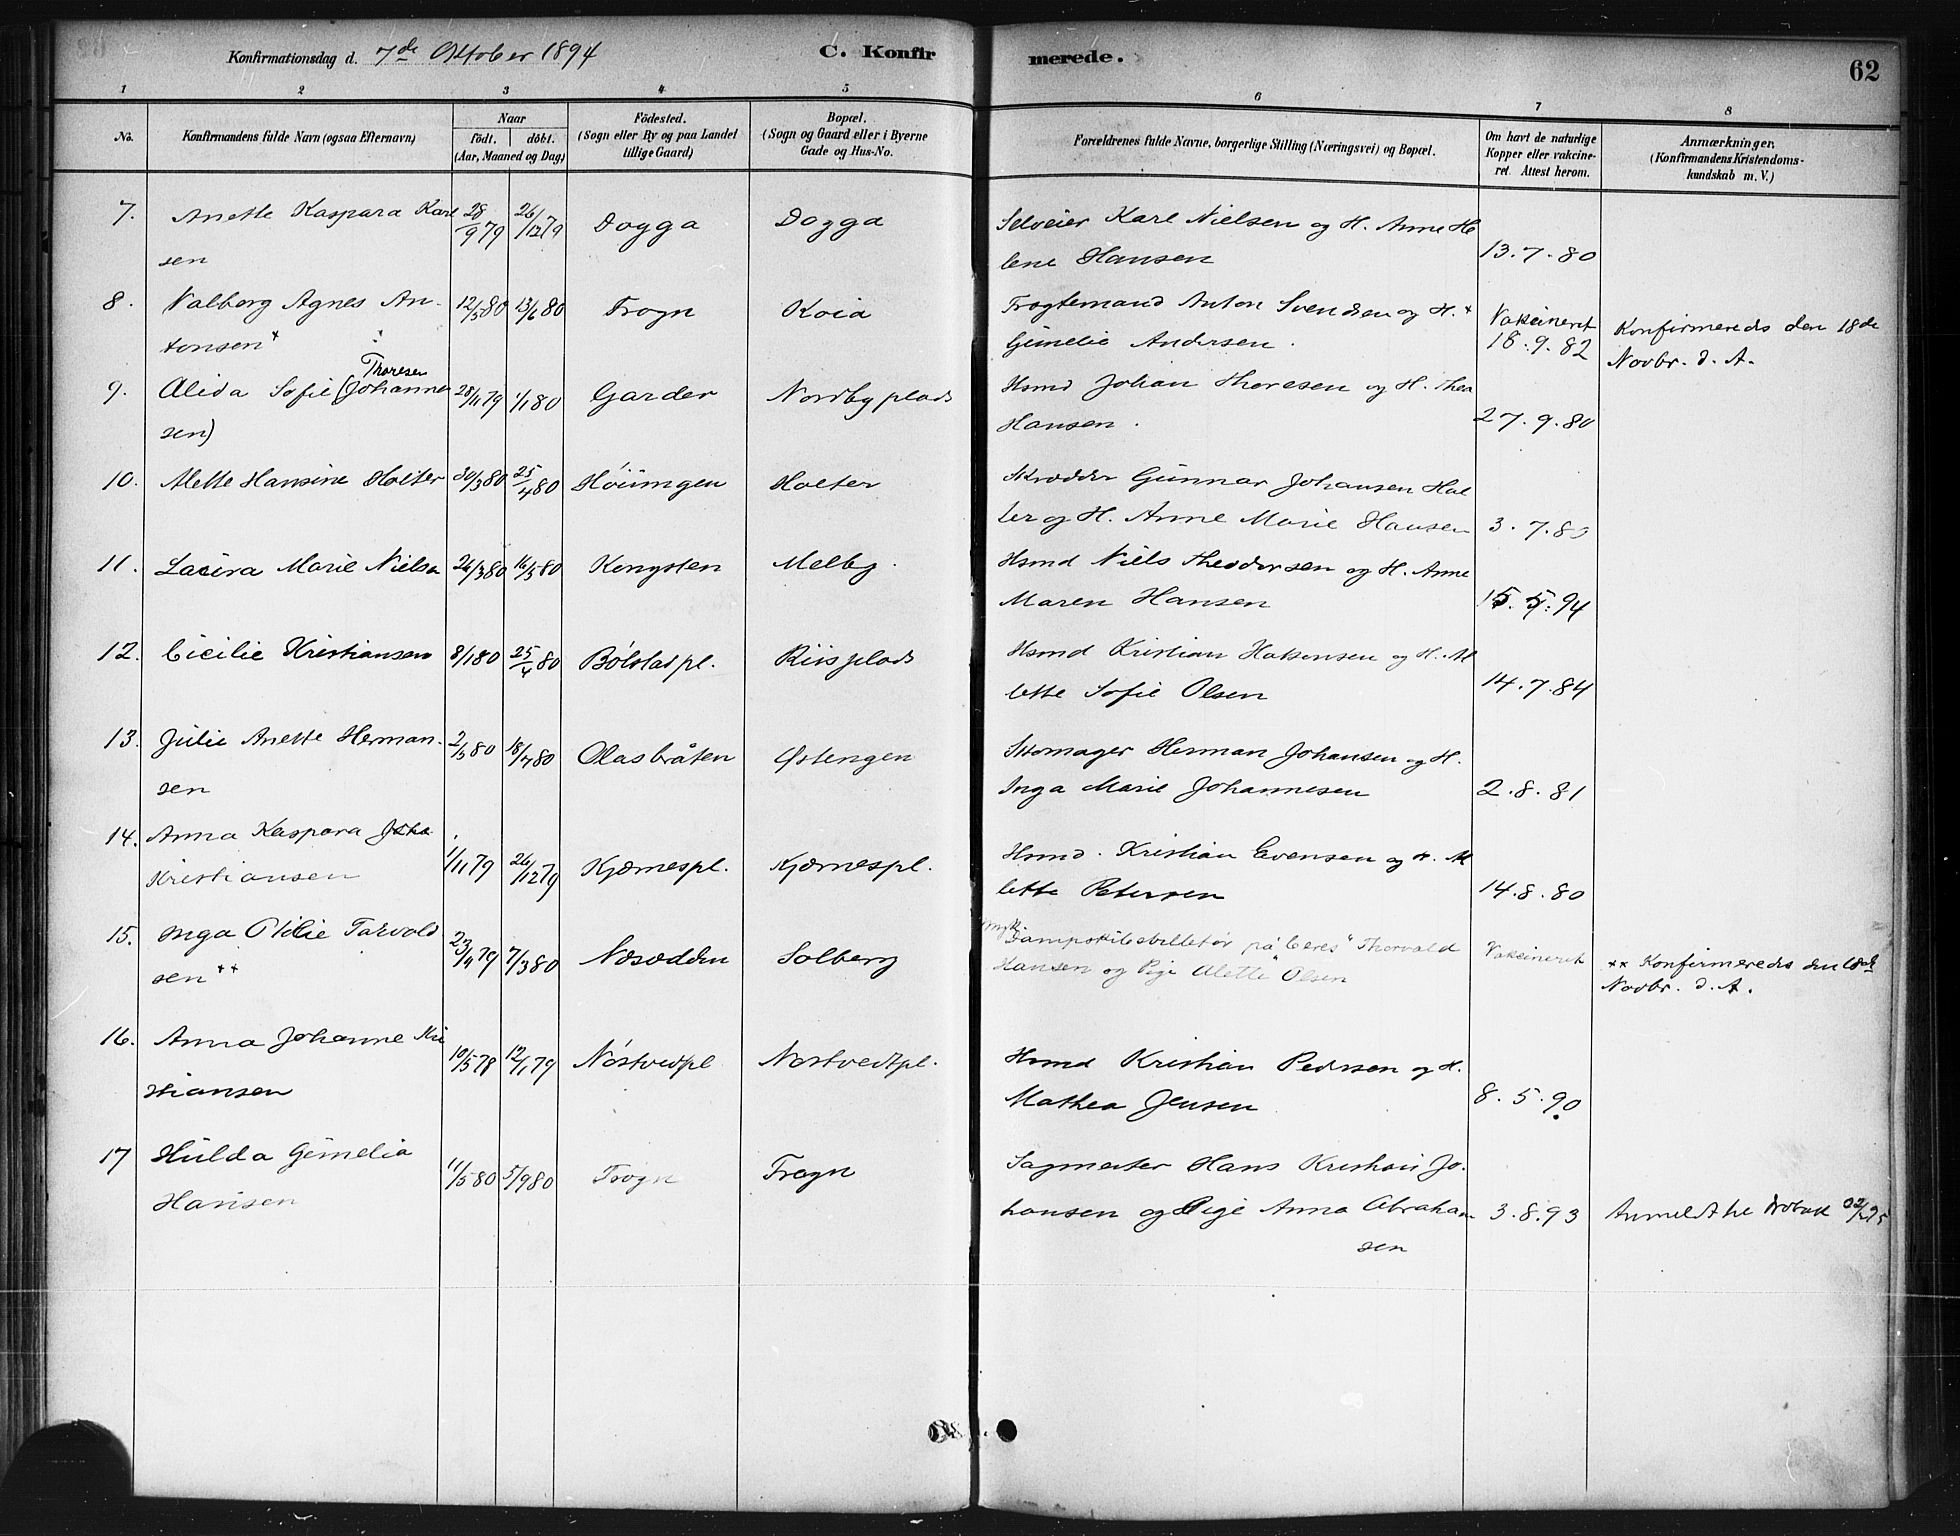 Konfirmationsdag d. 7de Oktober 1894 C. Konfirmerede. 62
1 2 3 4 5 6 7 8
No. Konfirmandens fulde Navn (ogsaa Efternavn) Naar født. døbt. (Aar, Maaned og Dag) Fødested. (Sogn eller By og paa Landet tillige Gaard) Bopæl. (Sogn og Gaard eller i Byerne Gade og Hus-No.) Forældrenes fulde Navne, borgerlige Stilling (Næringsvei) og Bopæl. Om havt de naturlige Kopper eller vakcineret. Attest herom. Anmærkninger. (Konfirmandens Kristendomskundskab m. V.)
7. Anette Kaspara Karl 28/9 79 26/12 79 Dogga Dogga Selveier Karl Nielsen og H. Anne He
sen lene Hansen 13.7.80
8. Valborg Agnes An- 12/5 80 13/6 80 Frogn Koia Anton Svendsen og H. + Vakcineret Konfirmeredes den 18de
tonsen + Gimelie Andersen. 18.9.82 Novbr. d. A.
Thoresen
9. Alida Sofie (Johanne 28/11 79 1/1 80 Garder Nordby plads Hsmd Johan Thoresen og H. Thea
sen) Hansen. 27.9.80
10. Mette Hansine Holter 30/3 80 25/4 80 Høiungen Holter Skrædder Gunnar Johansen Hol
ter og H. Anne Marie Hansen 3.7.80
11. Laura Marie Nielsen 26/3 80 16/5 80 Kongsten Melby. Hsmd Niels Theodorsen og H. Anne
Maren Hansen 15.5.94
12. Cicilie Kristiansen 8/1 80 25/4 80 Bölstadpl. Riisplads Hsmd Kristian Hakensen og H. M
lette Sofie Olsen 14.7.84
13. Julie Anette Herman- 2/5 80 18/7 80 Olasbråten Østengen Skomager Herman Johansen og H.
sen Inga Marie Johannesen 2.8.81
14. Anna Kaspara Joha
Kristiansen 1/11 79 26/12 79 Kjærnespl. Kjærnespl. Hsmd. Kristian Evensen og H. M
lette Petersen 14.8.80
15. Inga Otilie Torvald 23/4 79 7/3 80 Næsodden Solberg Dampskibsbilletør på "Ceres" Thorvald Vakcineret ++ Konfirmeredes den 18de
sen ++ Hansen og Pige Alette Olsen Novbr. d. A.
16. Anna Johanne Kri 10/5 78 12/1 79 Nöstvedpl Nøstvedtpl. Hsmd Kristian Pedersen og H.
stiansen Mathea Jensen 8.5.90
17 Hulda Gimelia 11/5 80 5/9 80 Frogn Frogn Sagmester Hans Kristian Jo-
Hansen hansen og Pige Anna Abraham 3.8.93 Anmeldt til Drøbak
sen